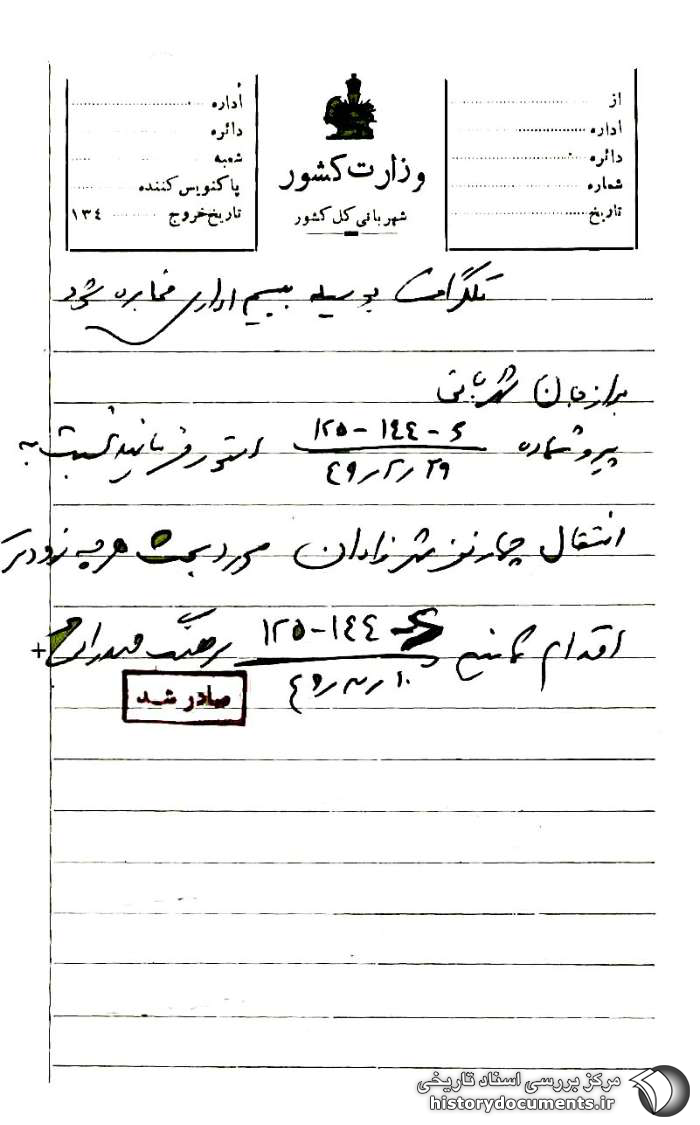 از
اداره
دائره
شماره
تاریخ
وزارت کشور
شهربانی کل کشور
اداره
دائره
شعبه
پاکنویس کننده
تاریخ خروج ۱۳۴
تلگراف بوسیله بیسیم اداری مخابره شود
برازجان شهربانی
پیرو شماره ۱۲۵-۱۴۴-۶ / ۴۹/۲/۲۹ دستور فرمائید نسبت به
انتقال چهار نفر شهرزادان مورد بحث هرچه زودتر
اقدام نمایند ۱۲۵-۱۴۴ / ۴۹/۳/۱۰ سرهنگ
صادر شد
مرکز بررسی اسناد تاریخی
historydocuments.ir